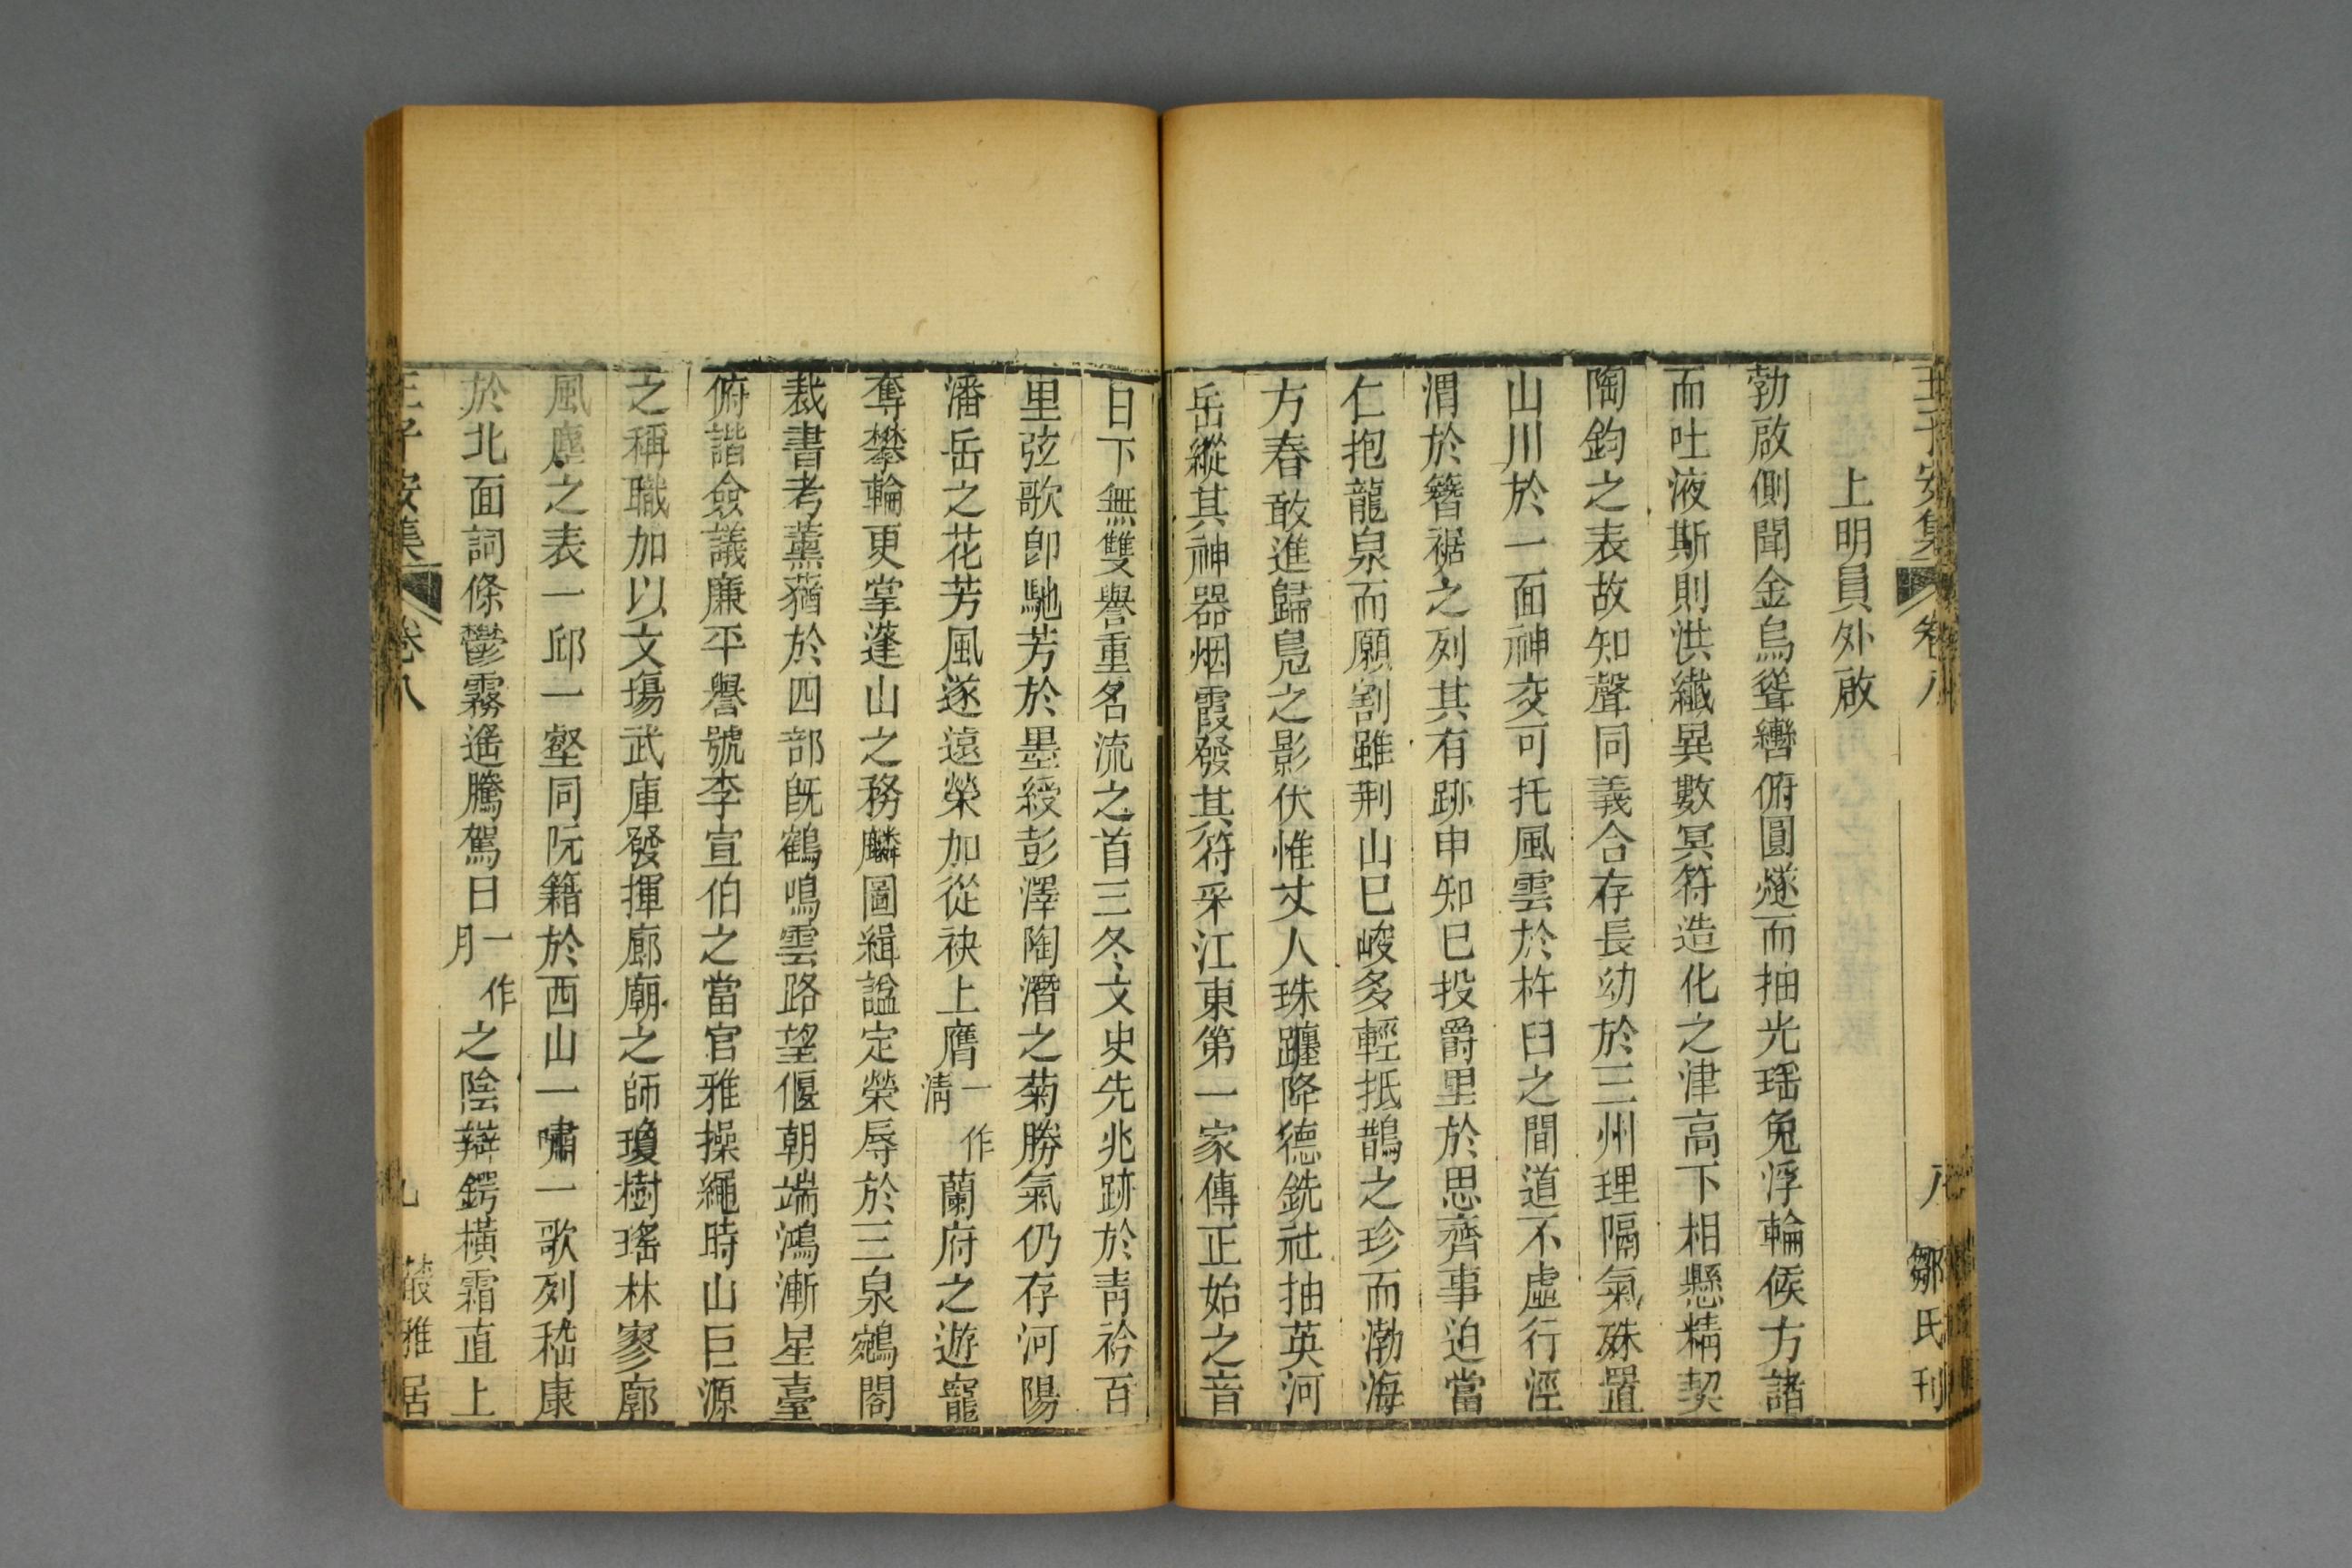 王子安集 卷八 八 鄒氏刊
上明員外啟
勃啟側聞金烏聳轡俯圓燧而抽光瑶兔浮輪候方諸
而吐液斯則洪纎異數冥符造化之津高下相懸精契
陶鈞之表故知聲同義合存長幼於三州理隔氣殊置
山川於一面神交可托風雲於杵臼之間道不虛行涇
渭於簪裾之列其有跡申知已投爵里於思齊事迫當
仁抱龍泉而願割雖荆山已峻多輕抵鵲之珍而渤海
方春敢進歸鳬之影伏惟丈人珠躔降德銑社抽英河
岳縱其神器烟霞發其符采江東第一家傳正始之音
日下無雙譽重名流之首三冬文史先兆跡於青衿百
里弦歌卽馳芳於墨綬彭澤陶潛之菊勝氣仍存河陽
潘岳之花芳風遂遠榮加從袂上膺一作清蘭府之遊寵
奪攀輪更掌蓬山之務麟圖緝諡定榮辱於三泉鵷閣
裁書考薰蕕於四部旣鶴鳴雲路望偃朝端鴻漸星臺
俯諧僉議廉平譽號李宣伯之當官雅操繩時山巨源
之稱職加以文塲武庫發揮廊廟之師瓊樹瑤林寥廓
風塵之表一邱一壑同阮籍於西山一嘯一歌列嵇康
於北面詞條鬱霧遙騰駕日一作月之陰辯鍔橫霜直上
王子安集 卷八 九 叢雅居